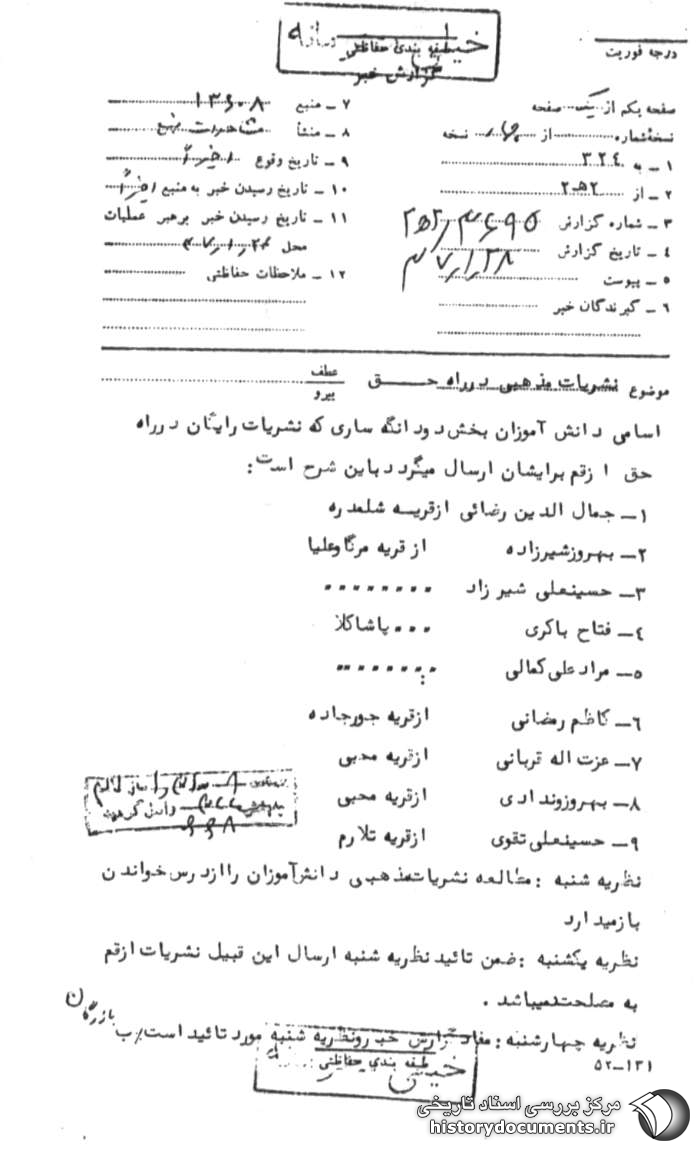 درجه فوریت
طبقه بندی حفاظتی
گزارش خبر
صفحه یکم از یک صفحه
نسخه شماره از چهار نسخه
۱ - به ۳۲٤
۲ - از ۲ هـ ۲
۳ - شماره گزارش
٤ - تاریخ گزارش ۴۷٫۱٫۲۸
٥ - پیوست
٦ - گیرندگان خبر
۷ - منبع ۱۳۶۰۸
۸ - منشأ مشاهدات منبع
۹ - تاریخ وقوع اخیراً
۱۰ - تاریخ رسیدن خبر به منبع اخیراً
۱۱ - تاریخ رسیدن خبر برهبر عملیات
محل
۱۲ - ملاحظات حفاظتی
موضوع نشریات مذهبی در راه حق
عطف
پیرو
اسامی دانش آموزان بخش دودانگه ساری که نشریات رایگان در راه
حق از قم برایشان ارسال میگردد باین شرح است :
۱ــ جمال الدین رضائی از قریه شلمدره
۲ــ بهروز شیرزاده از قریه مرگاو علیا
۳ــ حسینعلی شیر زاد " " " " " " " "
٤ــ فتاح باکری " " " پاشاکلا
٥ــ مراد علی کمالی " " " " " " " "
٦ــ کاظم رمضانی از قریه جورجاده
۷ــ عزت اله قربانی از قریه محبی
۸ــ بهروز وندادی از قریه محبی
۹ــ حسینعلی تقوی از قریه تلارم
نظریه شنبه : مطالعه نشریات مذهبی دانش آموزان را از درس خواندن
باز میدارد
نظریه یکشنبه : ضمن تائید نظریه شنبه ارسال این قبیل نشریات از قم
به مصلحت نمیباشد .
نظریه چهارشنبه : مفاد گزارش خبر و نظریه شنبه مورد تائید است/ب
بازرگان
طبقه بندی حفاظتی
۱۳۱ــ٥۲
مرکز بررسی اسناد تاریخی
historydocuments.ir